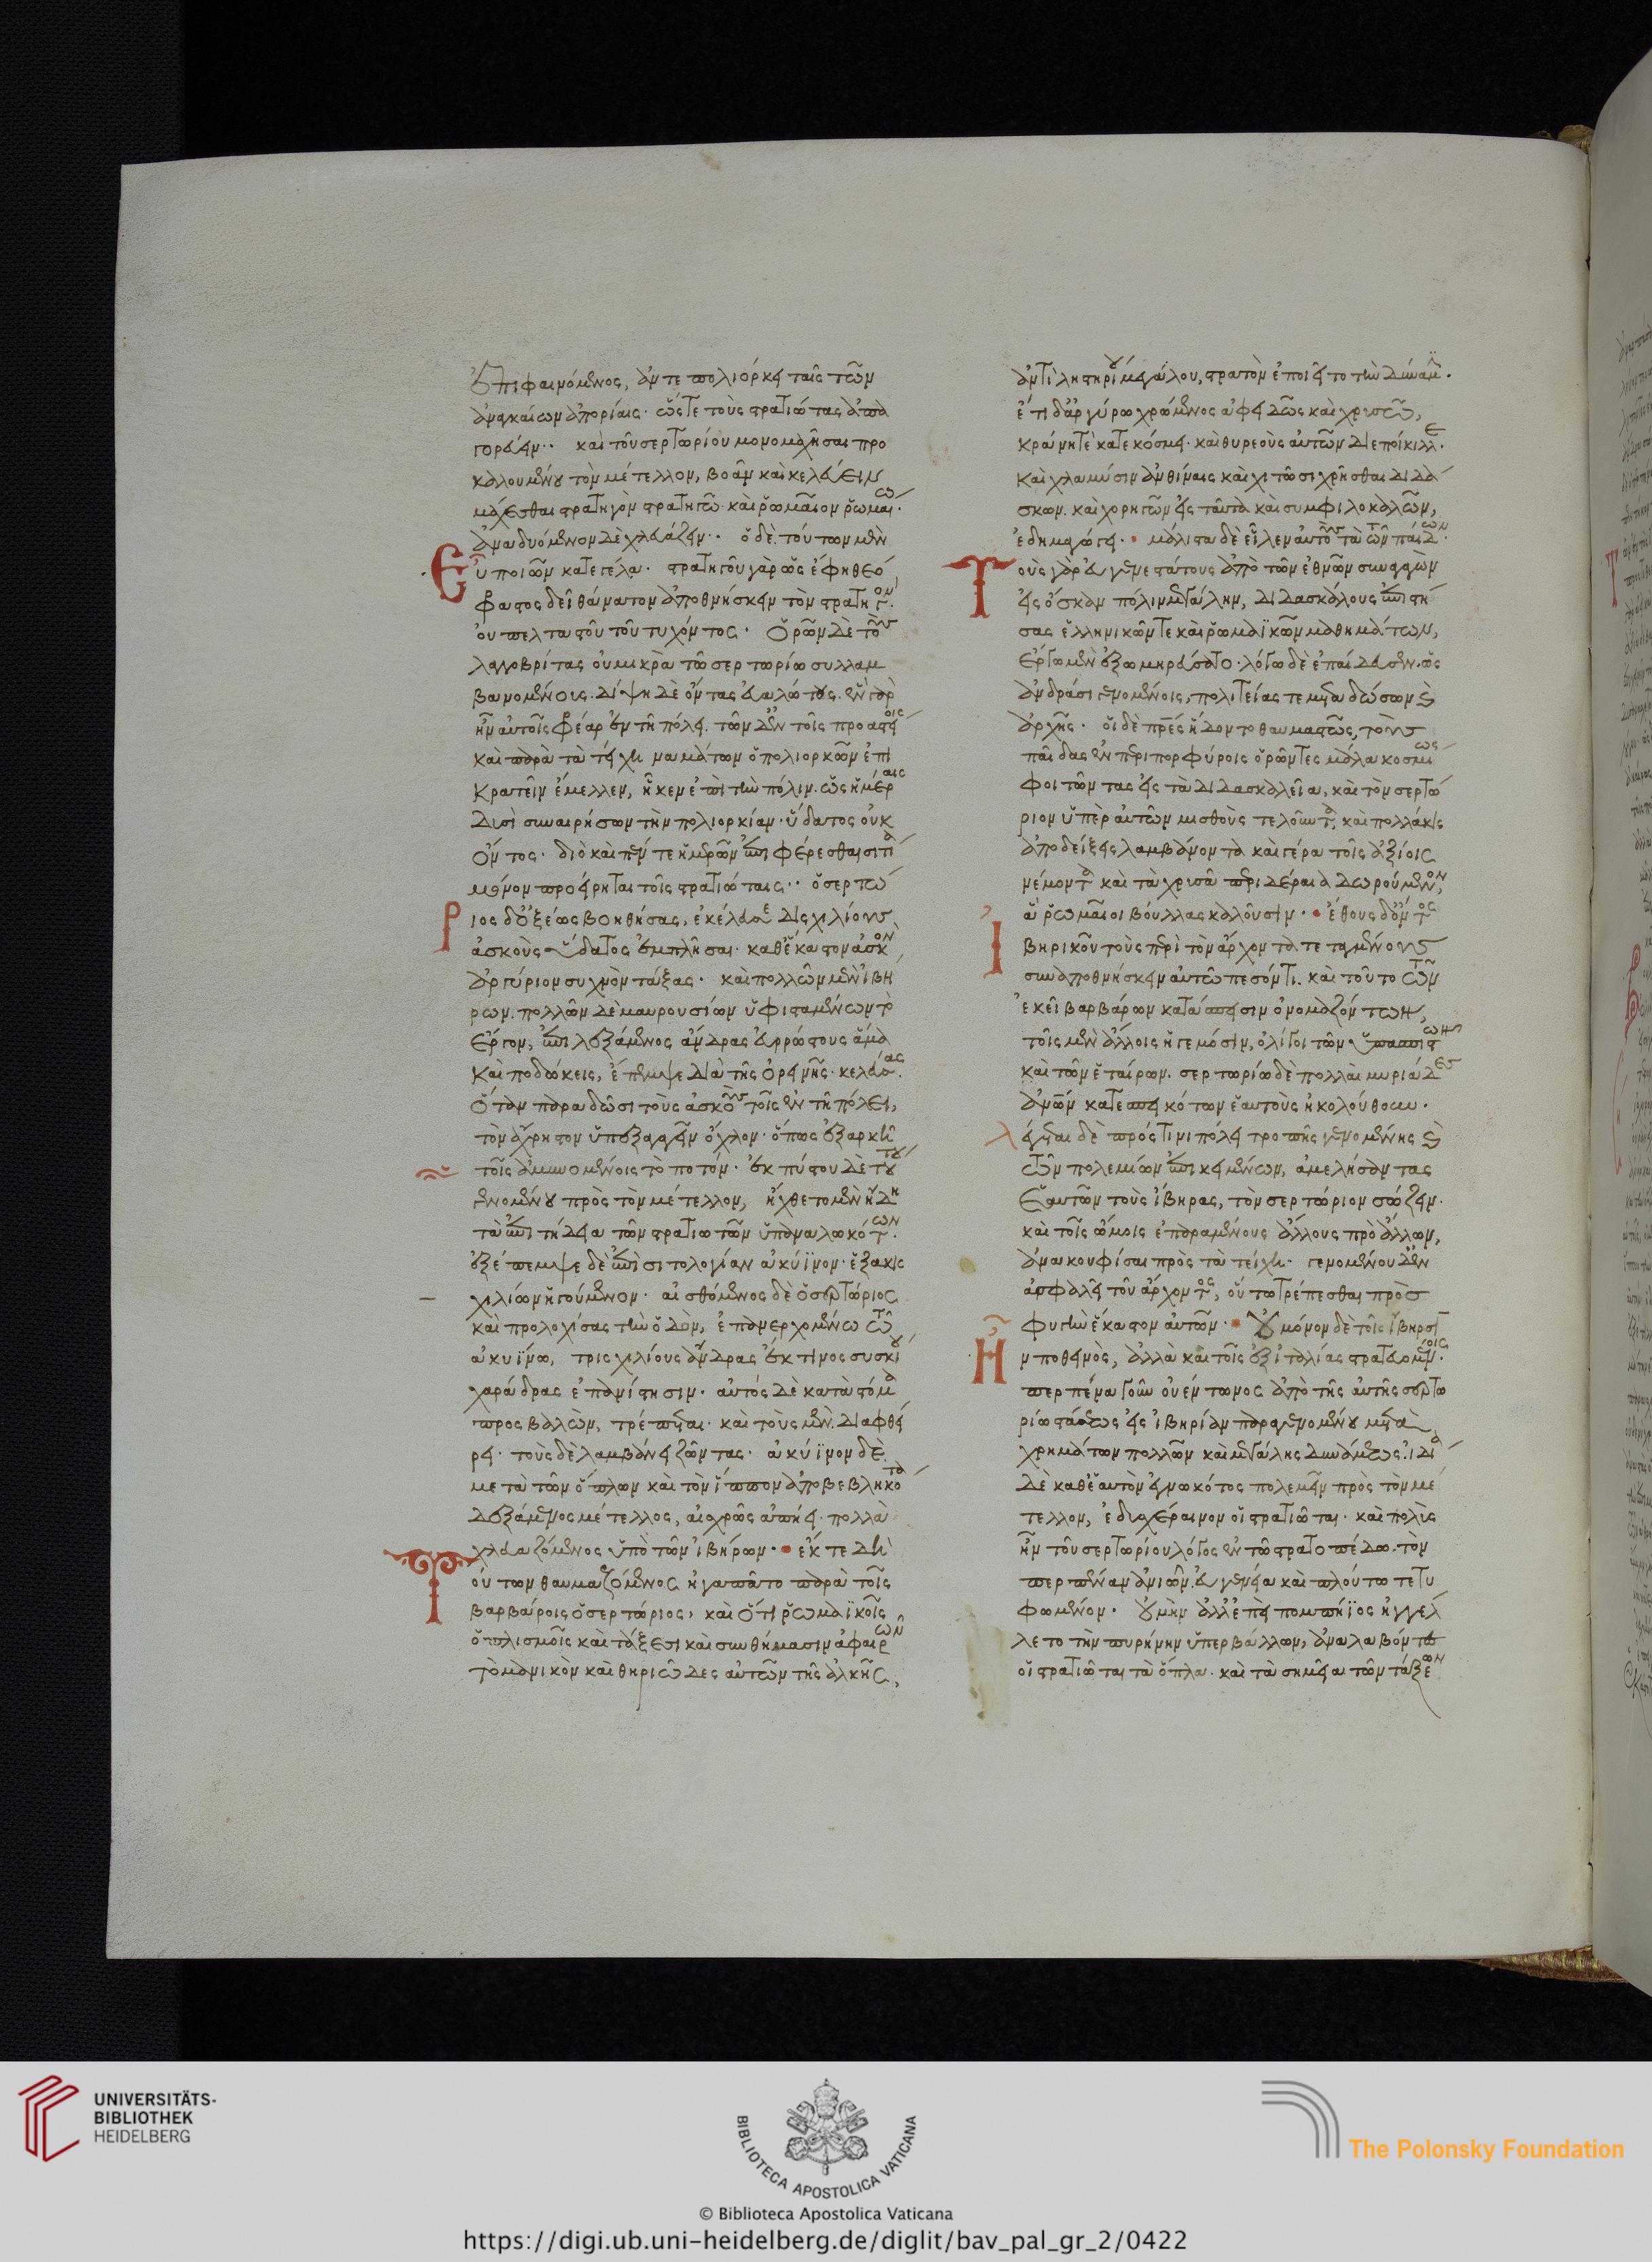 ἐπιφαινόμενος, ἄν τε πολιορκῇ ταῖς τῶν
ἀναγκαίων ἀπορίαις· ὥστε τοὺς στρατιώτας ἀπα
γορεύειν·· καὶ τοῦ σερτωρίου μονομαχῆσαι προ
καλουμένου τὸν μέτελλον, βοᾶν καὶ κελεύειν
μάχεσθαι στρατηγὸν στρατηγῷ καὶ ῥωμαῖον ῥωμαίῳ·
ἀναδυόμενον δὲ χλευάζειν·· ὁ δὲ τούτων μὲν
Εὖ ποιῶν κατεγέλα· στρατηγοῦ γὰρ ὡς ἔφη θεό
φραστος δεῖ θάνατον ἀποθνήσκειν τὸν στρατηγόν·
οὐ πελταστοῦ τοῦ τυχόντος· ὁρῶν δὲ τοὺς
λαγοβρίτας οὐ μικρὰ τῷ σερτωρίῳ συλλαμ
βανομένους· δίψῃ δὲ ὄντας εὐαλώτους· ἓν γὰρ
ἦν αὐτοῖς φρέαρ ἐν τῇ πόλει· τῶν δ' ἐν τοῖς προαστείοις
καὶ παρὰ τὰ τείχη ναμάτων ὁ πολιορκῶν ἐπι
κρατεῖν ἔμελλεν, ἧκεν ἐπὶ τὴν πόλιν· ὡς ἡμέραις
δυσὶ συναιρήσων τὴν πολιορκίαν· ὕδατος οὐκ
ὄντος· διὸ καὶ πέντε ἡμερῶν ἐπιφέρεσθαι σιτία
μόνον προείρηται τοῖς στρατιώταις·· ὁ σερτώ
Ριος δ' ὀξέως βοηθήσας, ἐκέλευσε δισχιλίους
ἀσκοὺς ὕδατος ἐμπλῆσαι· καθ' ἕκαστον ἀσκὸν
ἀργύριον συχνὸν τάξας· καὶ πολλῶν μὲν ἰβή
ρων· πολλῶν δὲ μαυρουσίων ὑφισταμένων τὸ
ἔργον, ἐπιλεξάμενος ἄνδρας εὐρώστους ἅμα
καὶ ποδώκεις, ἔπεμψε διὰ τῆς ὀρεινῆς· κελεύσας·
ὅταν παραδῶσι τοὺς ἀσκοὺς τοῖς ἐν τῇ πόλει,
τὸν ἄχρηστον ὑπεξαγαγεῖν ὄχλον· ὅπως ἐξαρκῇ
τοῖς ἀμυνομένοις τὸ ποτόν· ἐκπύστου δὲ τούτου
γενομένου πρὸς τὸν μέτελλον, ἤχθετο μὲν ἤδη
τὰ ἐπιτήδεια τῶν στρατιωτῶν ὑπαναλωκότων·
ἐξέπεμψε δὲ ἐπὶ σιτολογίαν ἀκύϊνον· ἑξακις
χιλίων ἡγούμενον· αἰσθόμενος δὲ ὁ σερτώριος
καὶ προλοχίσας τὴν ὁδὸν, ἐπανερχομένῳ τῷ
ἀκυΐνῳ, τρισχιλίους ἄνδρας ἔκ τινος συσκίου
χαράδρας ἐπανίστησιν· αὐτὸς δὲ κατὰ στόμα
προσβαλὼν, τρέπεται· καὶ τοὺς μὲν διαφθεί
ρει· τοὺς δὲ λαμβάνει ζῶντας· ἀκύϊνον δὲ
μετὰ τῶν ὅπλων καὶ τὸν ἵππον ἀποβεβληκότα
δεξάμενος μέτελλος, αἰσχρῶς ἀπῄει· πολλὰ
χλευαζόμενος ὑπὸ τῶν ἰβήρων· ἔκ τε δὴ
Τούτων θαυμαζόμενος ἠγαπᾶτο παρὰ τοῖς
βαρβάροις ὁ σερτώριος, καὶ ὅτι ῥωμαϊκοῖς
ὁπλισμοῖς καὶ τάξεσι καὶ συνθήμασιν ἀφαιρῶν
τὸ μανικὸν καὶ θηριῶδες αὐτῶν τῆς ἀλκῆς,
ἀντὶ λῃστηρίου μεγάλου, στρατὸν ἐποιεῖτο τὴν δύναμιν·
ἔτι δ' ἀργύρῳ χρώμενος ἀφειδῶς καὶ χρυσῷ,
κράνη τε κατεκόσμει· καὶ θυρεοὺς αὐτῶν διεποίκιλλε·
καὶ χλαμύσιν ἀνθίναις καὶ χιτῶσι χρῆσθαι διδά
σκων· καὶ χορηγῶν εἰς ταῦτα καὶ συμφιλοκαλῶν,
ἐδημαγώγει· μάλιστα δὲ εἷλεν αὐτοὺς τὰ τῶν παίδων·
Τοὺς γὰρ εὐγενεστάτους ἀπὸ τῶν ἐθνῶν συναγαγὼν
εἰς ὄσκαν πόλιν μεγάλην, διδασκάλους ἐπιστή
σας ἑλληνικῶν τε καὶ ῥωμαϊκῶν μαθημάτων,
ἔργῳ μὲν ἐξωμηρεύσατο· λόγῳ δὲ ἐπαίδευεν· ὡς
ἀνδράσι γενομένοις, πολιτείας τε μεταδώσων καὶ
ἀρχῆς· οἱ δὲ πατέρες ἥδοντο θαυμαστῶς, τοὺς
παῖδας ἐν περιπορφύροις ὁρῶντες μάλα κοσμίως
φοιτῶντας εἰς τὰ διδασκαλεῖα, καὶ τὸν σερτώ
ριον ὑπὲρ αὐτῶν μισθοὺς τελοῦντα, καὶ πολλάκις
ἀποδείξεις λαμβάνοντα καὶ γέρα τοῖς ἀξίοις
νέμοντα καὶ τὰ χρυσᾶ περιδέραια δωρούμενον,
ἃ ῥωμαῖοι βούλλας καλοῦσιν· ἔθους δ' ὄντος
Ἰβηρικοῦ τοὺς περὶ τὸν ἄρχοντα τεταγμένους
συναποθνήσκειν αὐτῷ πεσόντι· καὶ τοῦτο τῶν
ἐκεῖ βαρβάρων κατάσπεισιν ὀνομαζόντων,
τοῖς μὲν ἄλλοις ἡγεμόσιν, ὀλίγοι τῶν ὑπασπιστῶν
καὶ τῶν ἑταίρων· σερτωρίῳ δὲ πολλαὶ μυριάδες
ἀνδρῶν κατεσπεικότων ἑαυτοὺς ἠκολούθουν·
λέγεται δὲ πρός τινι πόλει τροπῆς γενομένης καὶ
τῶν πολεμίων ἐπικειμένων, ἀμελήσαντας
ἑαυτῶν τοὺς ἴβηρας, τὸν σερτώριον σώζειν·
καὶ τοῖς ὤμοις ἐπαραμένους ἄλλους πρὸ ἄλλων,
ἀνακουφίσαι πρὸς τὰ τείχη· γενομένου δ' ἐν
ἀσφαλεῖ τοῦ ἄρχοντος, οὕτω τρέπεσθαι πρὸς
φυγὴν ἕκαστον αὐτῶν· οὐ μόνον δὲ τοῖς ἴβηρσιν
Ἦν ποθεινὸς, ἀλλὰ καὶ τοῖς ἐξ ἰταλίας στρατευομένοις·
περπέννα γοῦν οὐέντωνος ἀπὸ τῆς αὐτῆς σερτω
ρίῳ στάσεως εἰς ἰβηρίαν παραγενομένου μετὰ
χρημάτων πολλῶν καὶ μεγάλης δυνάμεως· ἰδίᾳ
δὲ καθ' ἑαυτὸν ἐγνωκότος πολεμεῖν πρὸς τὸν μέ
τελλον, ἐδυσχέραινον οἱ στρατιῶται· καὶ πολὺς
ἦν τοῦ σερτωρίου λόγος ἐν τῷ στρατοπέδῳ· τὸν
περπένναν ἀνιῶν εὐγενείᾳ καὶ πλούτῳ τετυ
φωμένον· οὐ μὴν ἀλλ' ἐπεὶ πομπήϊος ἠγγέλ
λετο τὴν πυρήνην ὑπερβάλλων, ἀναλαβόντες
οἱ στρατιῶται τὰ ὅπλα· καὶ τὰ σημεῖα τῶν τάξεων
UNIVERSITÄTS-
BIBLIOTHEK
HEIDELBERG
BIBLIOTECA APOSTOLICA VATICANA
© Biblioteca Apostolica Vaticana
The Polonsky Foundation
https://digi.ub.uni-heidelberg.de/diglit/bav_pal_gr_2/0422